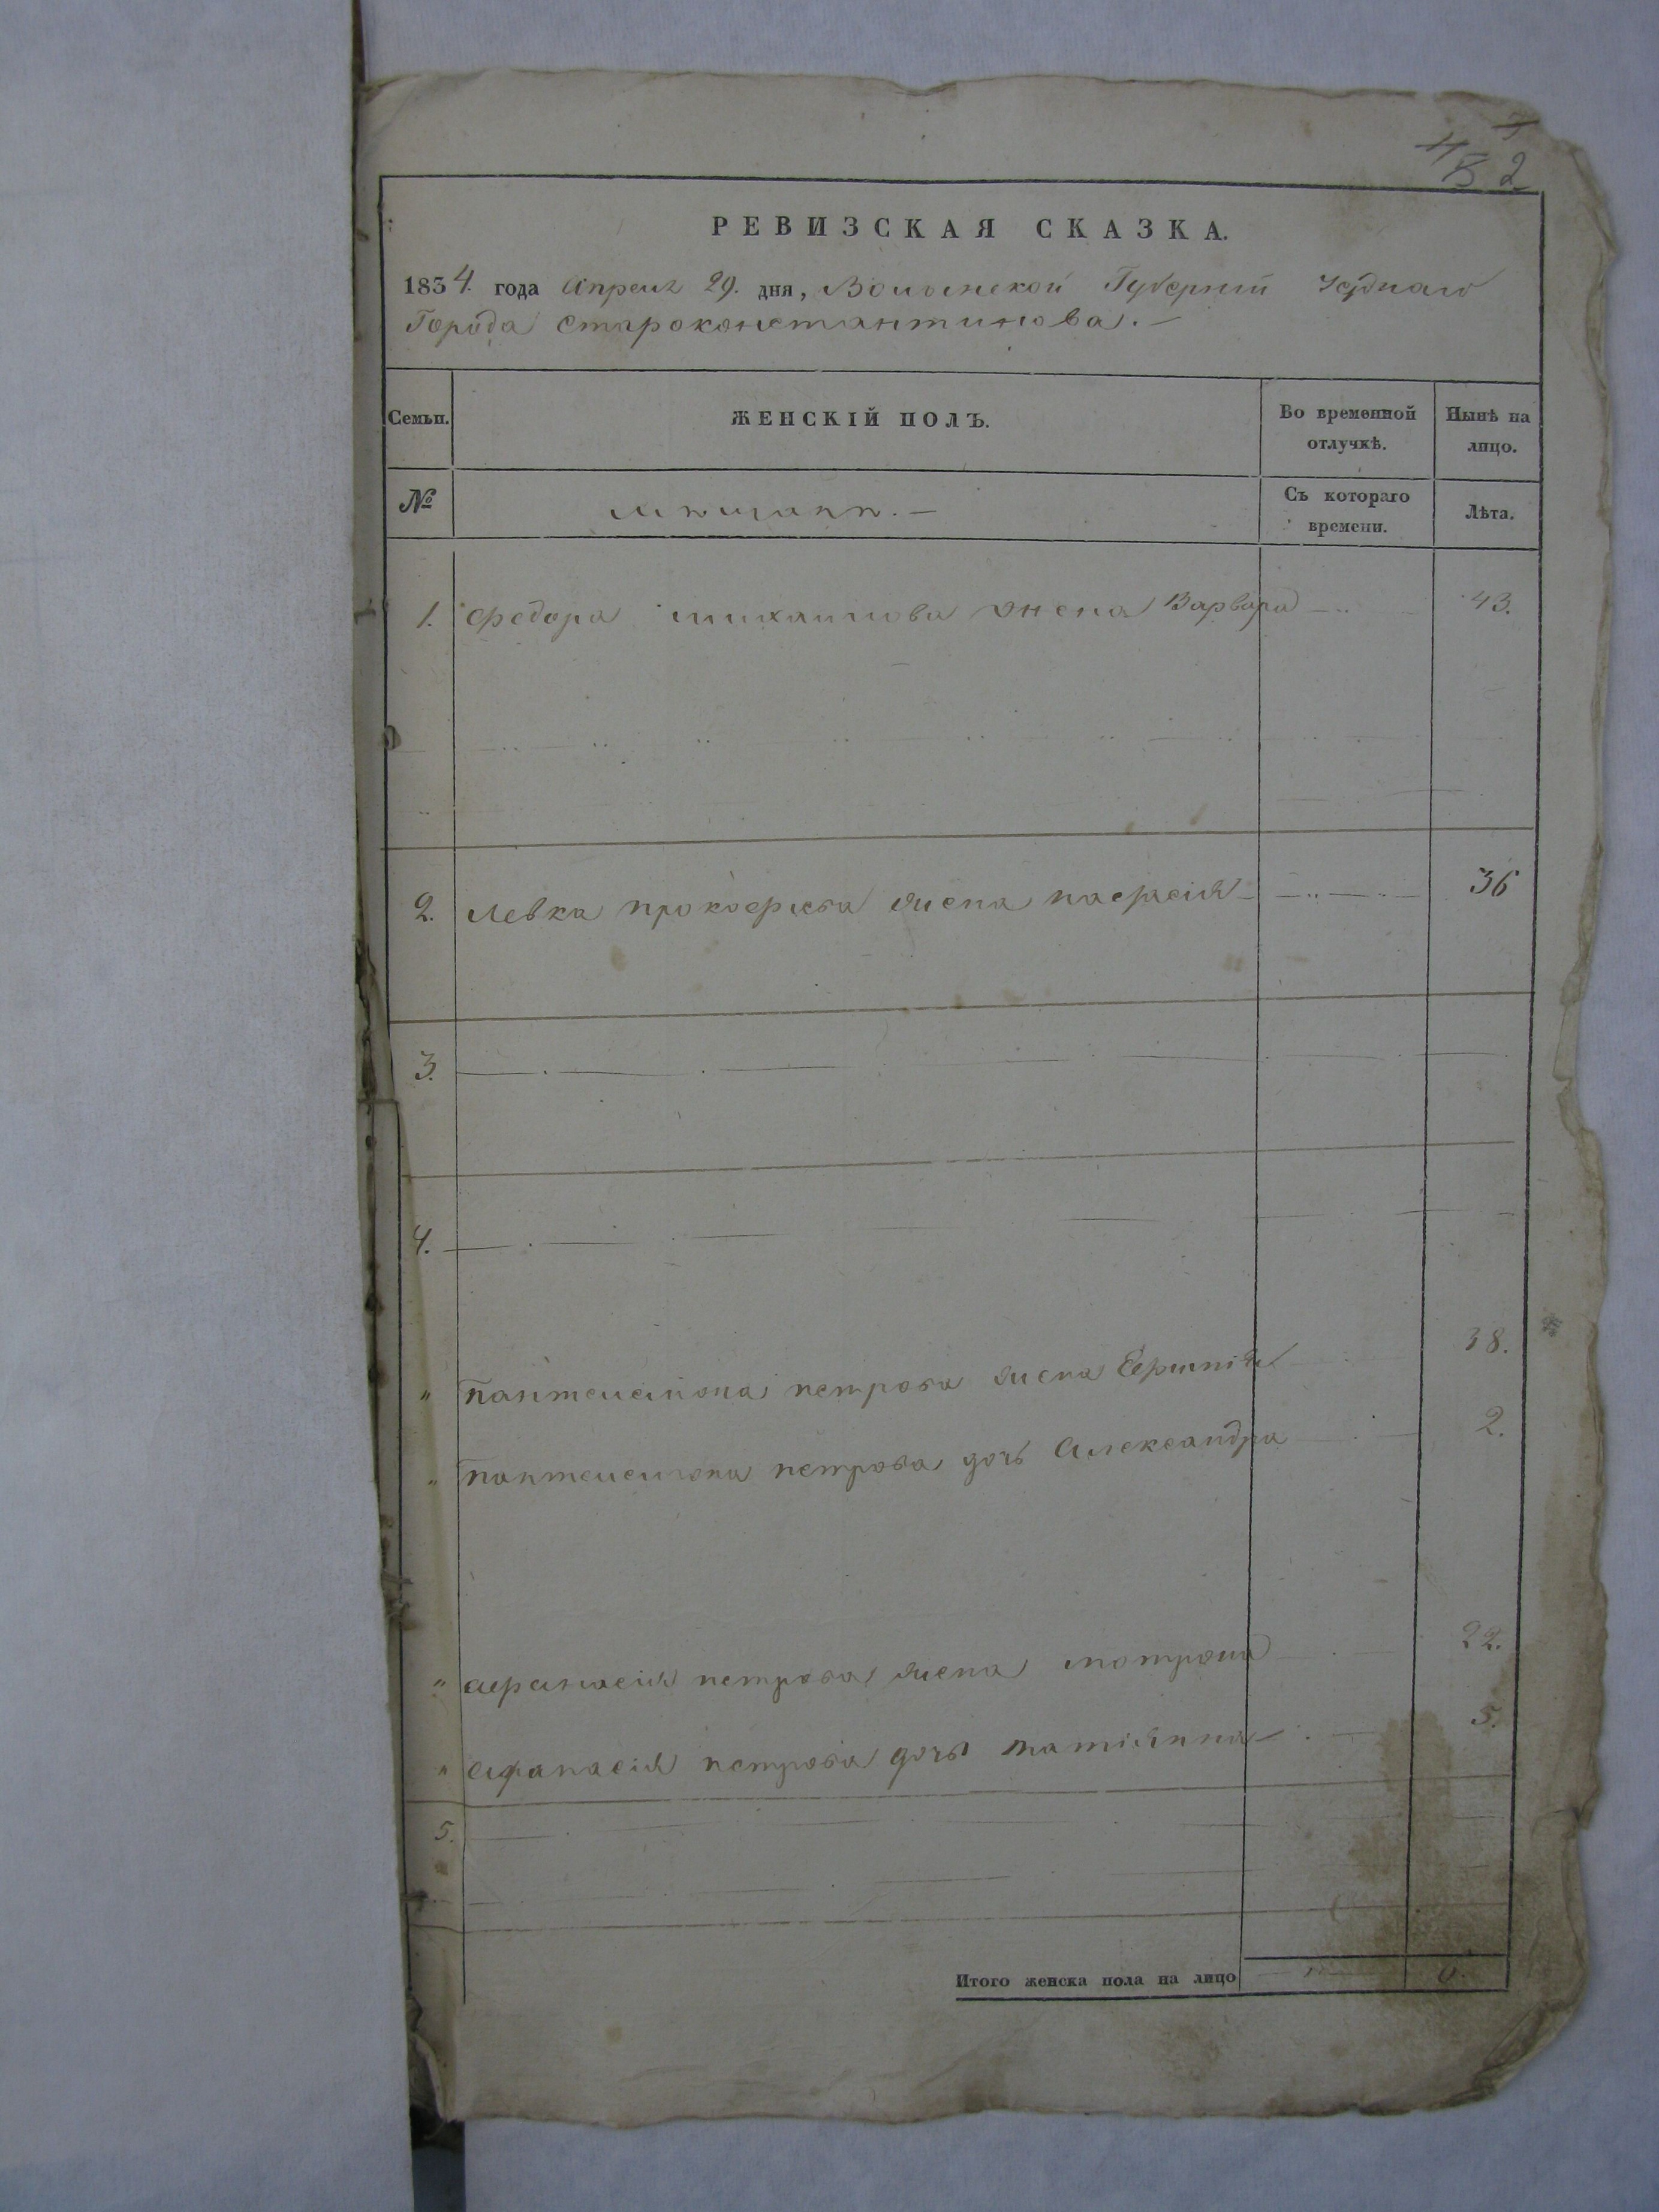 2
РЕВИЗСКАЯ СКАЗКА.
1834. года Апреля 29. дня, Волынской Губернии Уезднаго
Города Староконстантинова. —
Семьи. ЖЕНСКІЙ ПОЛЪ. Во временной отлучкѣ. Нынѣ на лицо.
№ Мещане. — Съ котораго времени. Лѣта.
1. Федора Михаилова жена Варвара 43.
2. Левка Прокофьева жена Настасія 36
3.
4.
" Пантелеимона Петрова жена Ефимія 38.
" Пантелеимона Петрова дочь Александра 2.
" Афанасія Петрова жена Мотрона 22.
" Афанасія Петрова дочь Татіянна 5.
5.
Итого женска пола на лицо " 6.